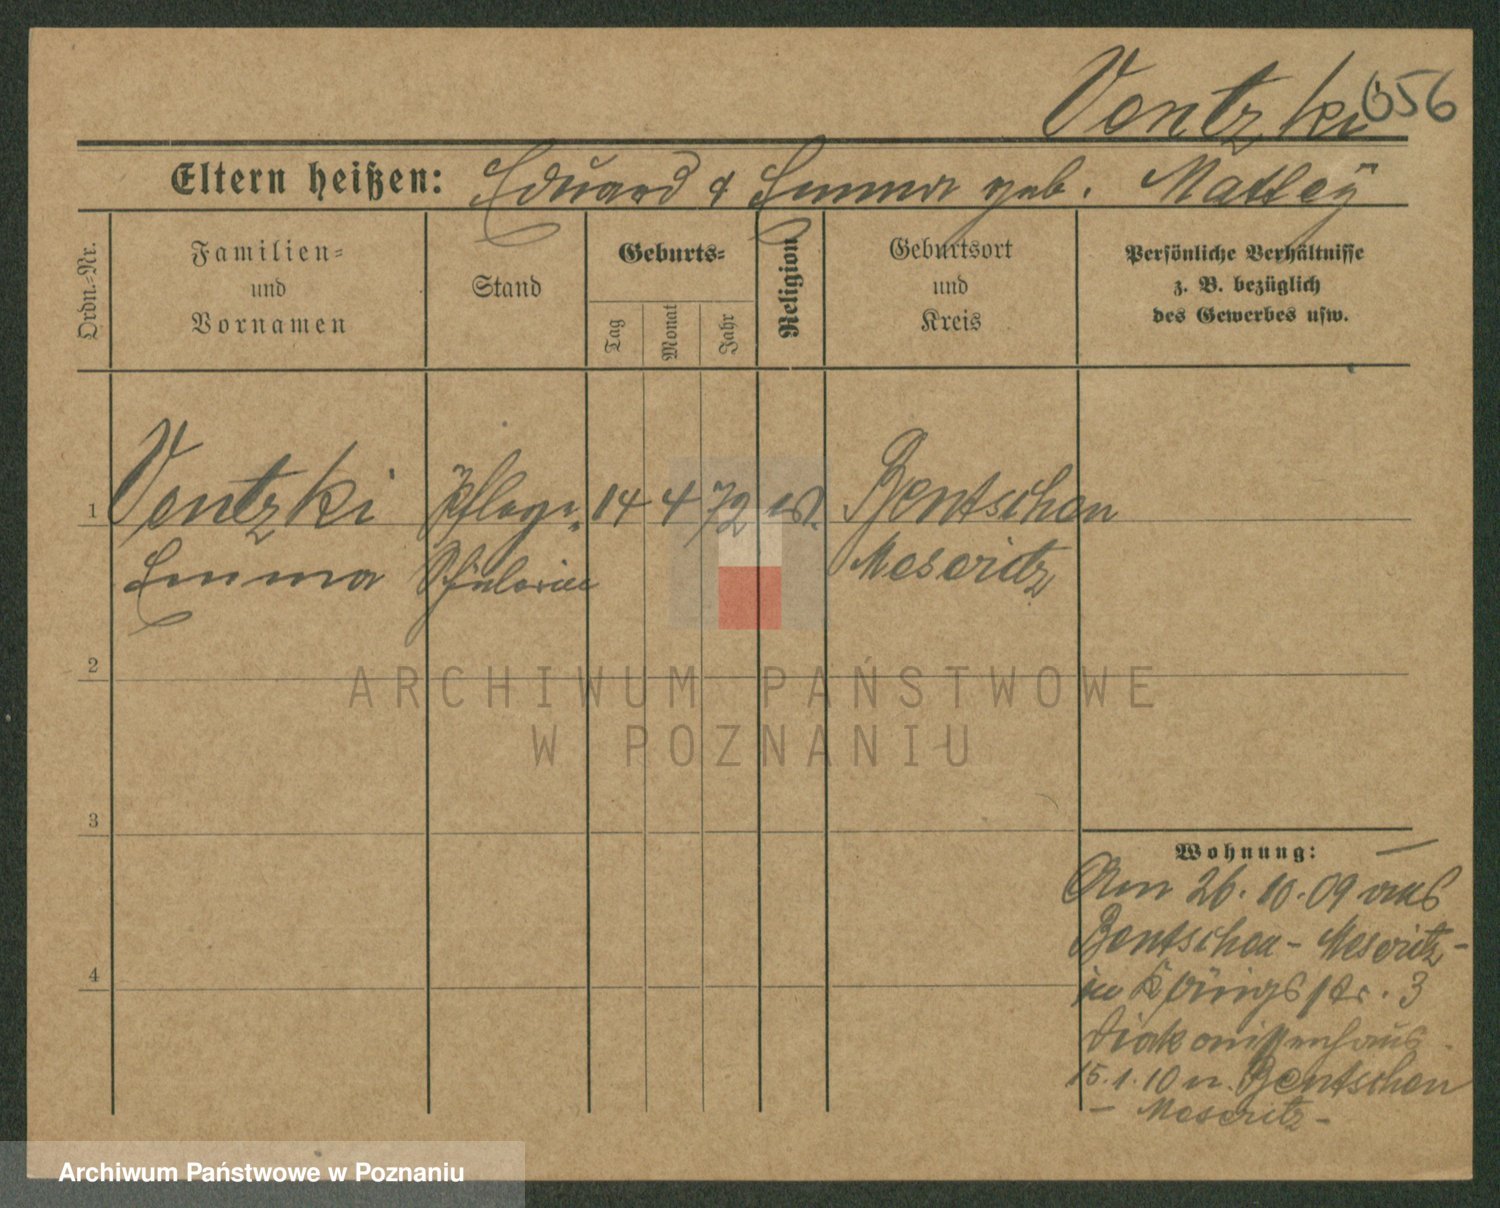 Ventzki 656
Eltern heißen: Eduard & Emma geb.
Ordn.-Nr.
Familien-
und
Vornamen
Stand
Geburts-
Tag
Monat
Jahr
Religion
Geburtsort
und
Kreis
Persönliche Verhältnisse
z. B. bezüglich
des Gewerbes usw.
1 Ventzki Pflege 14 4 72 ev. Bentschen
Emma Schülerin Meseritz
2
3
4
Wohnung:
Am 26.10.09 aus
Bentschen - Meseritz -
in Königsstr. 3
Diakonissenhaus.
15.1.10 n. Bentschen
- Meseritz -
ARCHIWUM PAŃSTWOWE
W POZNANIU
Archiwum Państwowe w Poznaniu